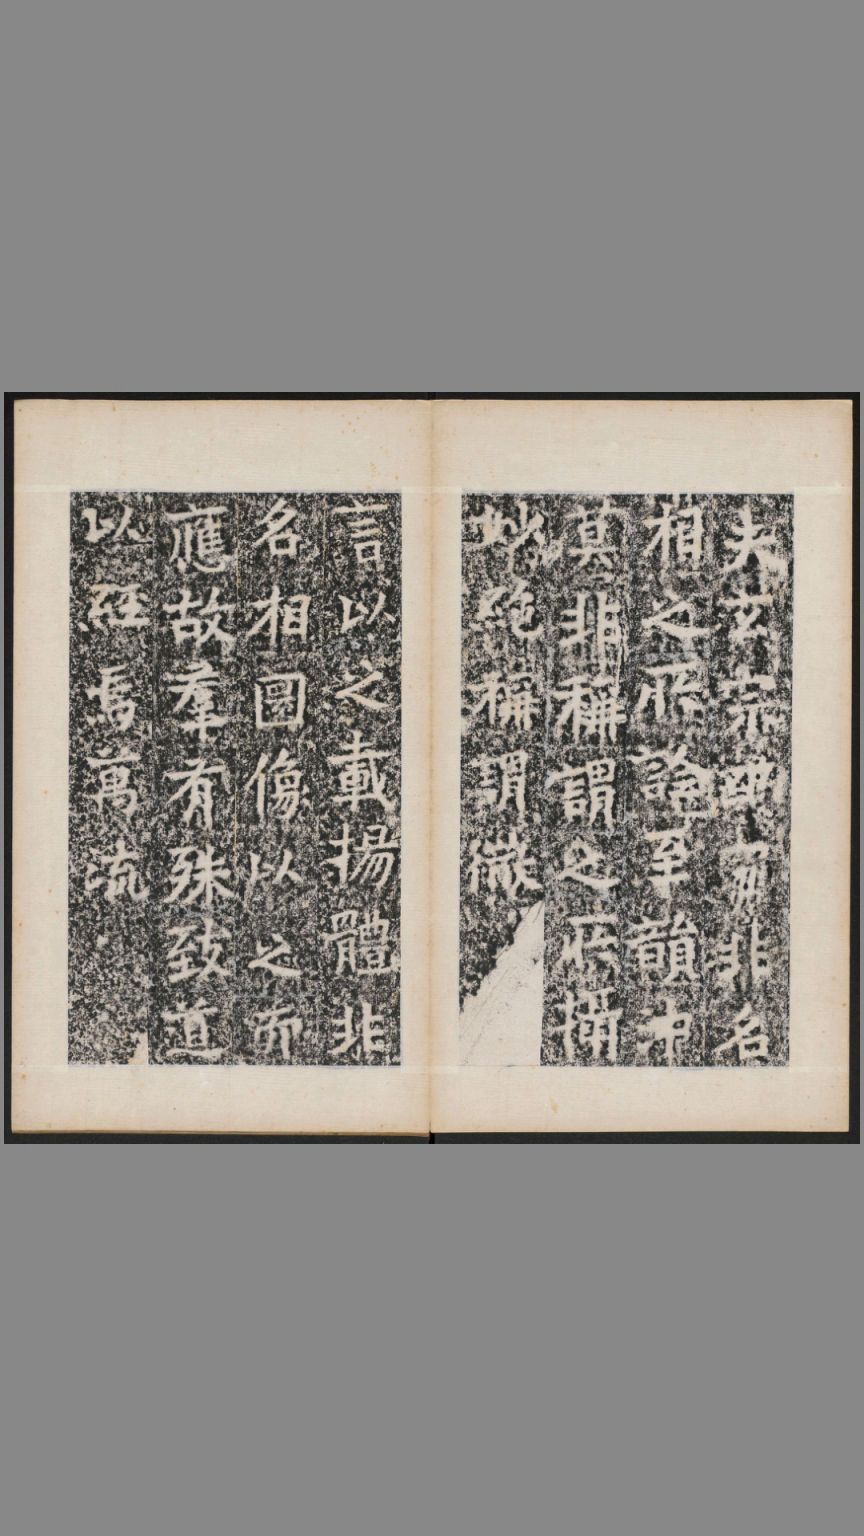 夫玄宗沖𡧤非名
相之所詮至韻沖
莫非稱謂之所攝
妙絶稱謂微
言以之載揚體非
名相圖傷以之而
應故羣有殊致道
以經焉萬流